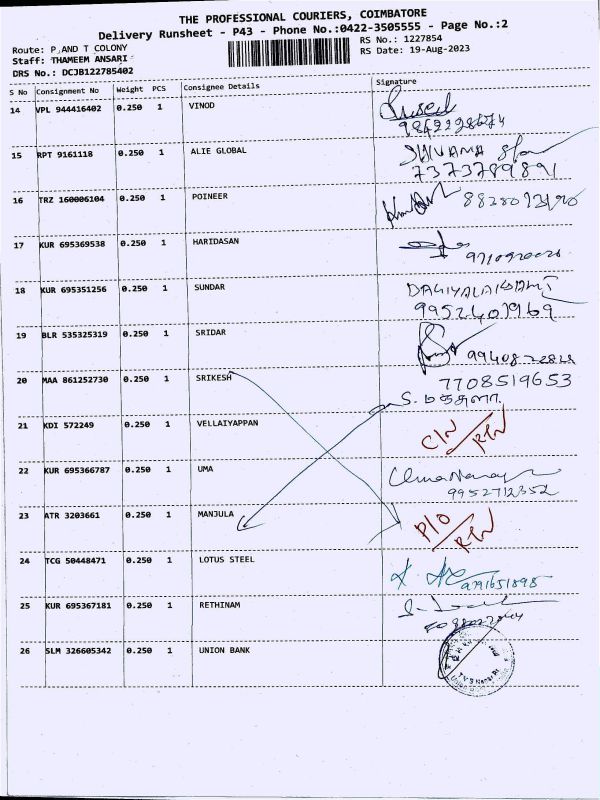 THE PROFESSIONAL COURIERS, COIMBATORE
Delivery Runsheet - P43 - Phone No.:0422-3505555 - Page No.:2
Route: P AND T COLONY
RS No.: 1227854
Staff: THAMEEM ANSARI
RS Date: 19-Aug-2023
DRS No.: DCJB122785402
S No Consignment No Weight PCS Consignee Details Signature
14 VPL 944416402 0.250 1 VINOD
15 RPT 9161118 0.250 1 ALIE GLOBAL
7373789891
16 TRZ 160006104 0.250 1 POINEER
17 KUR 695369538 0.250 1 HARIDASAN
18 KUR 695351256 0.250 1 SUNDAR
9952401969
19 BLR 535325319 0.250 1 SRIDAR
20 MAA 861252730 0.250 1 SRIKESH 7708519653
S. மஞ்சுளா
21 KDI 572249 0.250 1 VELLAIYAPPAN
22 KUR 695366787 0.250 1 UMA
9952712352
23 ATR 3203661 0.250 1 MANJULA
24 TCG 50448471 0.250 1 LOTUS STEEL
25 KUR 695367181 0.250 1 RETHINAM
26 SLM 326605342 0.250 1 UNION BANK